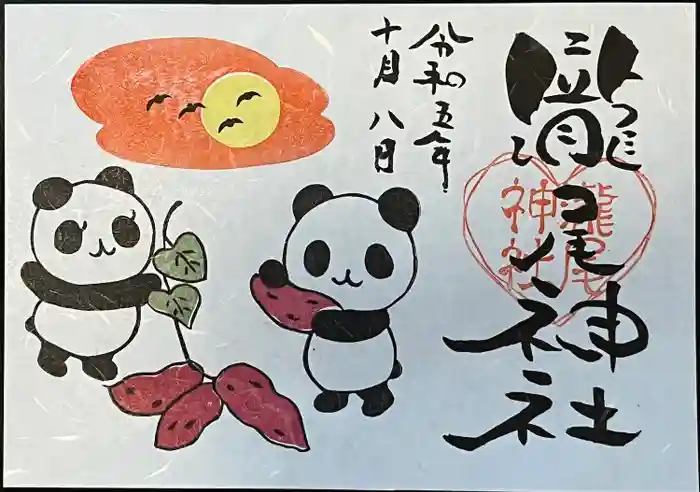 瀧尾神社
瀧尾
神社
令和五年
十月八日